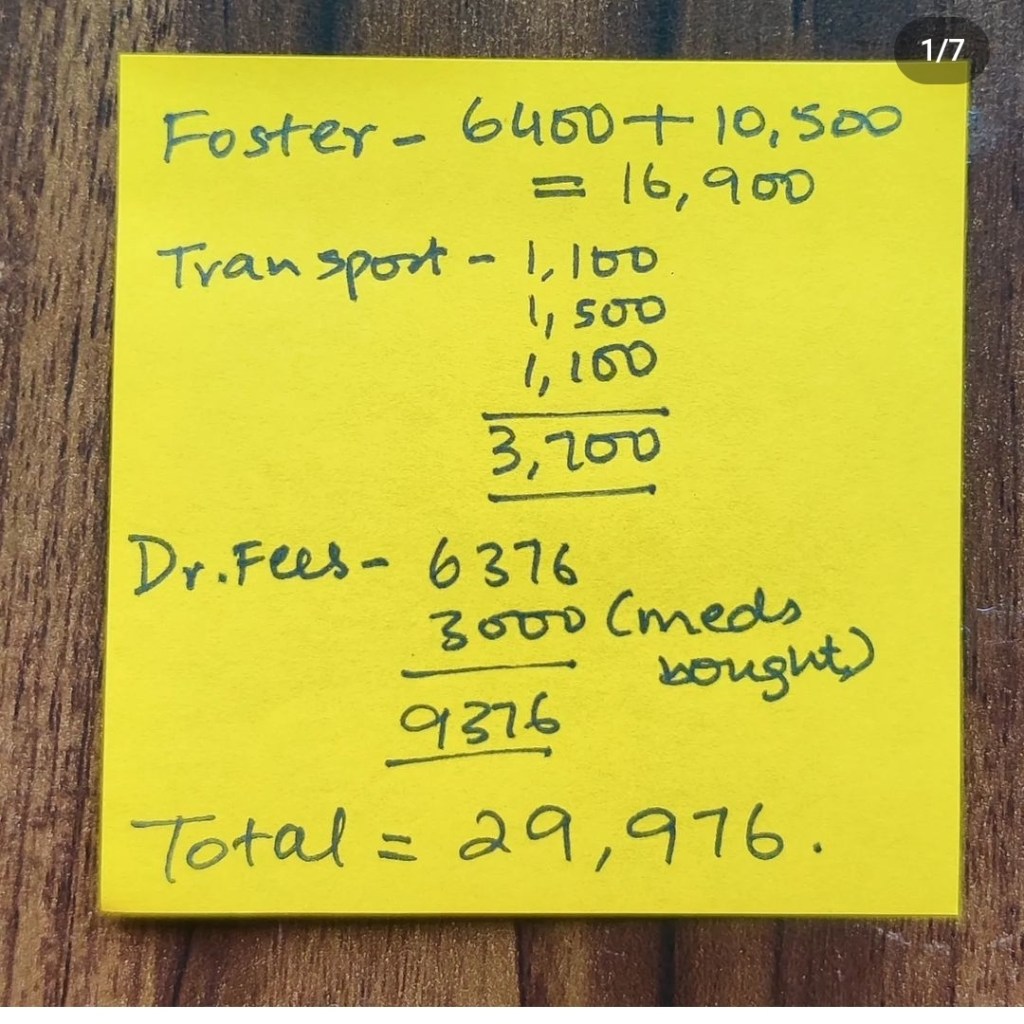 1/7
Foster - 6400 + 10,500
= 16,900
Transport - 1,100
1,500
1,100
3,700
Dr. Fees - 6376
3000 (meds
bought)
9376
Total = 29,976.